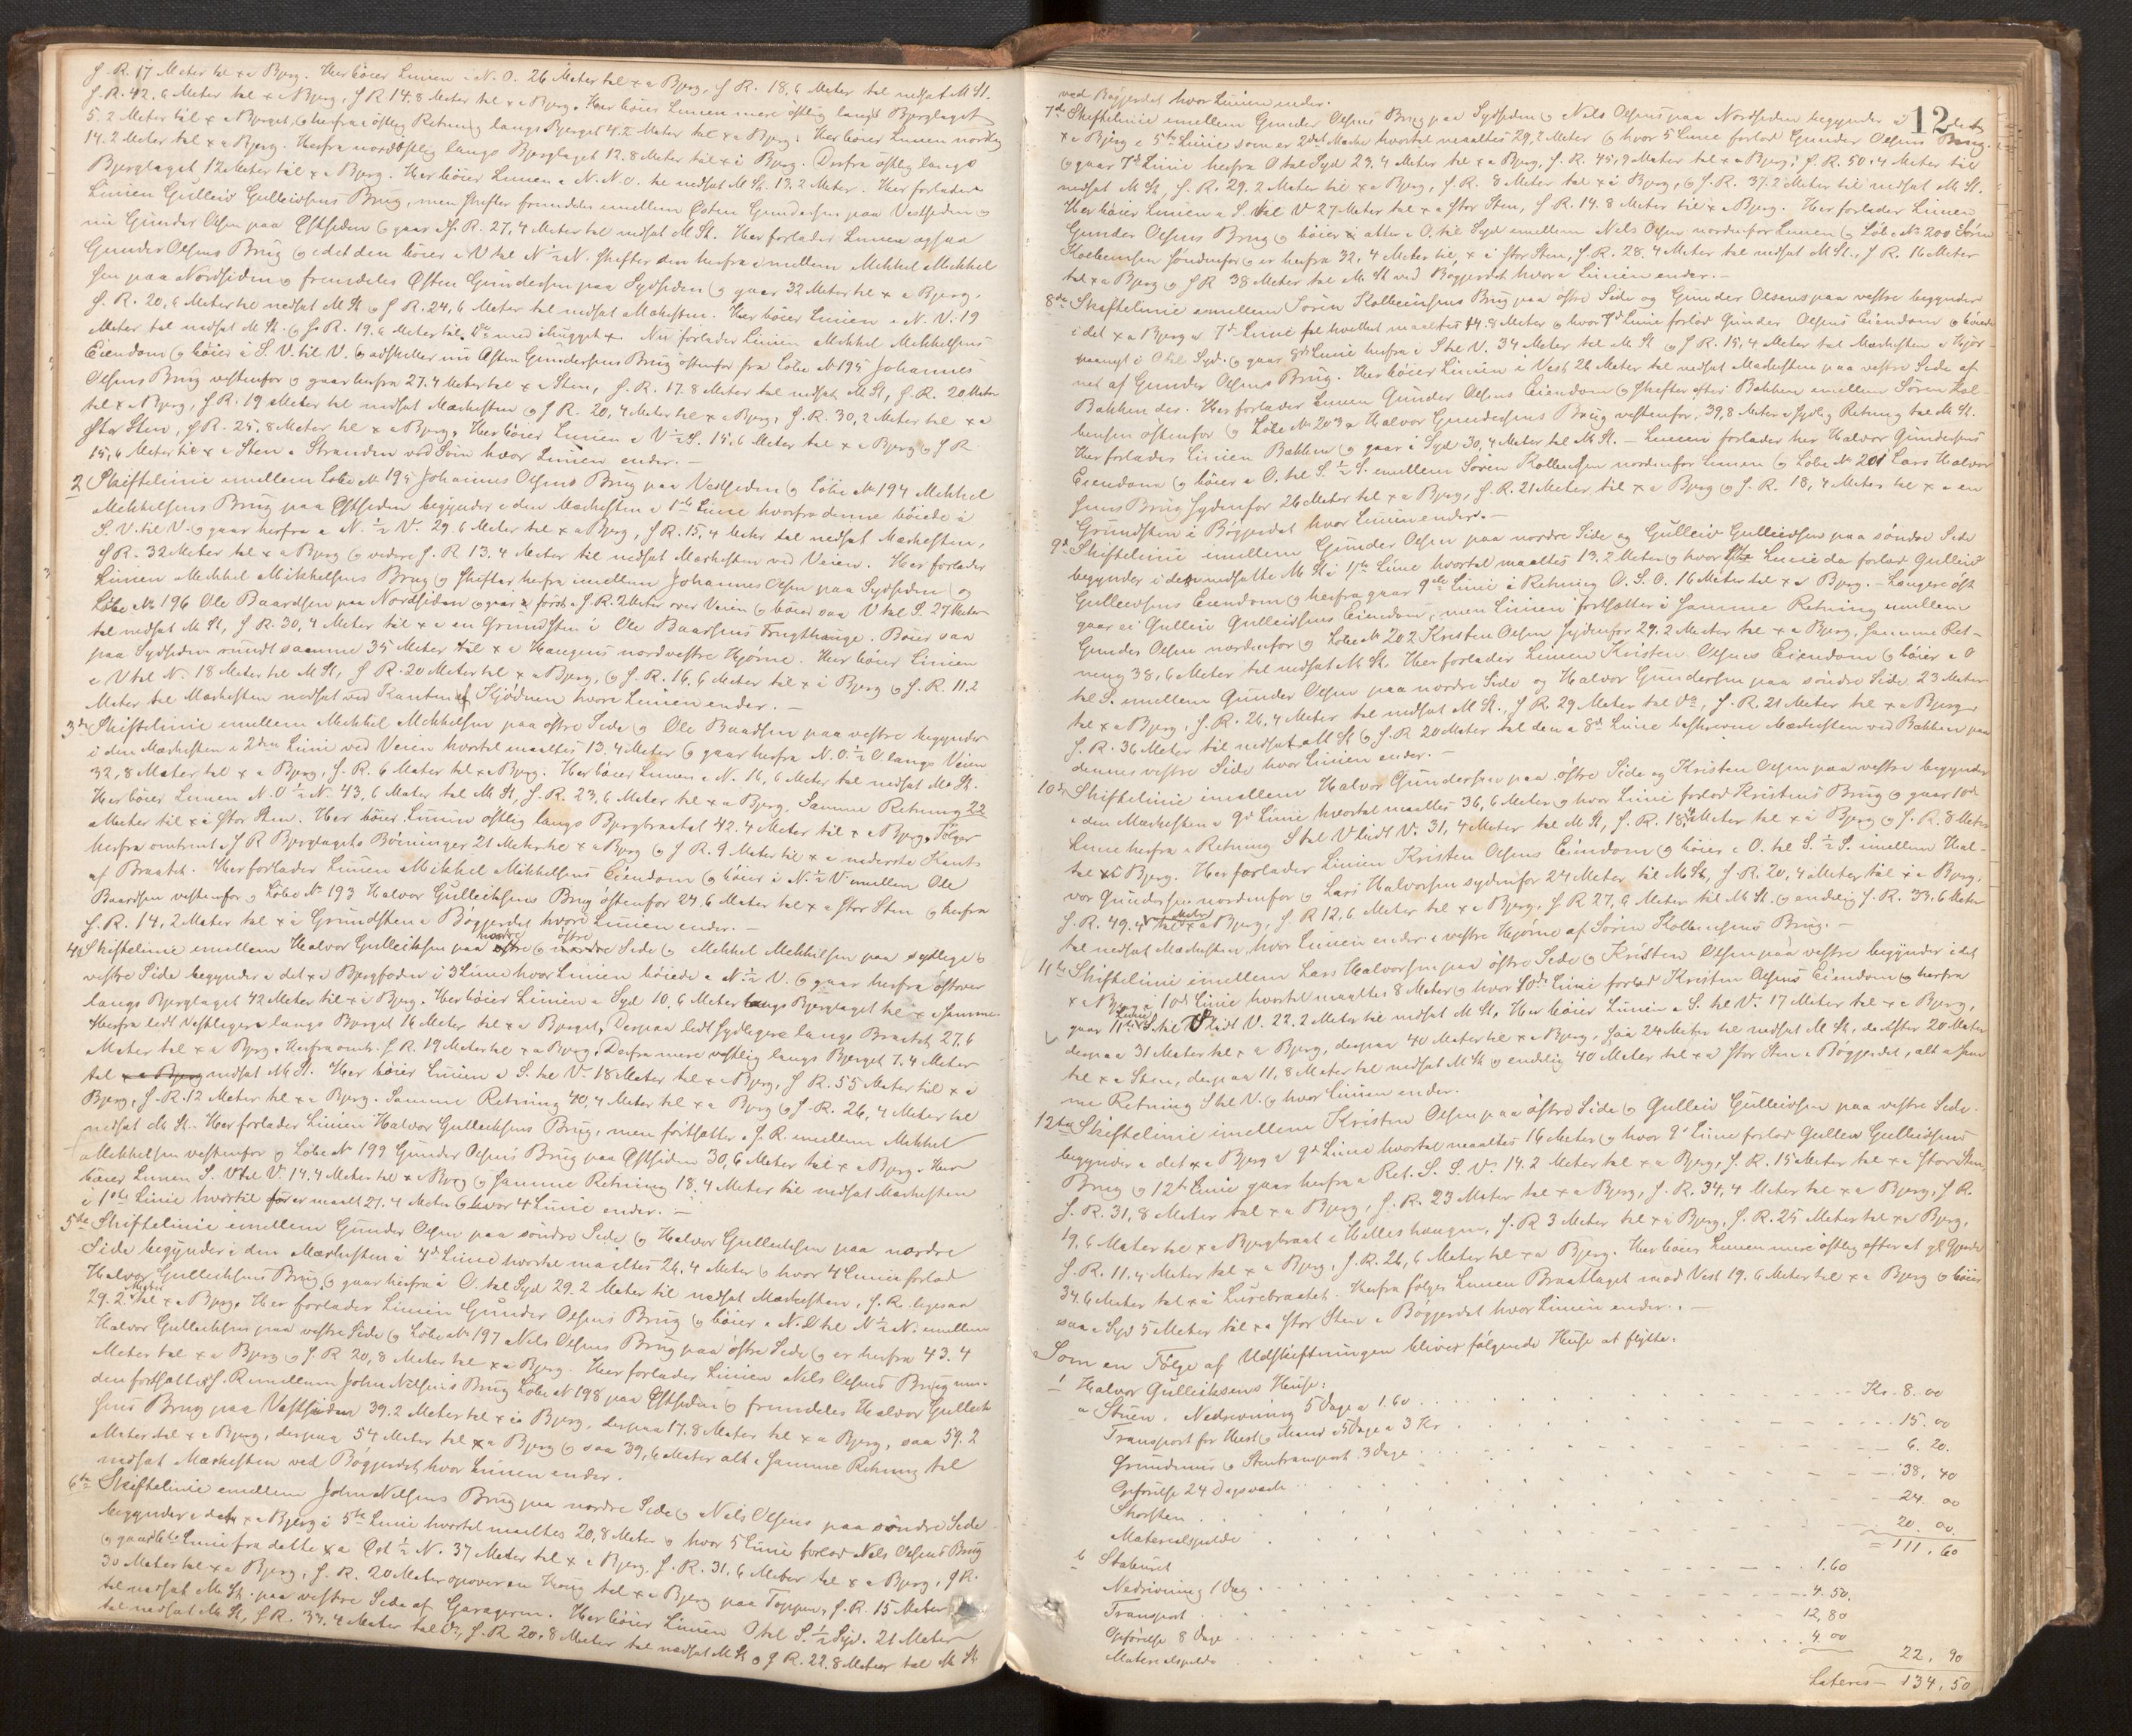 S. R. 17 Meter til x i Bjerg. Her böier Linien i N. O. 26 Meter til x i Bjerg, S. R. 18,6 Meter til nedsat M St.
S. R. 42.6 Meter til x i Bjerg, S R 14.8 Meter til x i Bjerg. Her böier Linien mere östlig langs Bjerglaget
5.2 Meter til x i Bjerget, og herfra i östlig Retning langs Bjerget 4.2 Meter til x i Bjerg. Her böier Linien nordlig
14.2 Meter til x i Bjerg. Herfra nordöstlig langs Bjerglaget 12.8 Meter til x i Bjerg. Derfra östlig langs
Bjerglaget 12 Meter til x i Bjerg. Her böier Linien i N. N. O. til nedsat M St. 13.2 Meter. Her forlader
Linien Gulleiv Gulleivsens Brug, men skifter fremdeles emellem Östen Gundersen paa Vestsiden og
nu Gunder Olsen paa Östsiden og gaar i S. R. 27,4 Meter til nedsat M St. Her forlader Linien ogsaa
Gunder Olsens Brug og idet den böier i V til N ½ N. skifter den herfra emellem Mikkel Mikkel
sen paa Nordsiden og fremdeles Östen Gundersen paa Sydsiden og gaar 32 Meter til x i Bjerg,
S. R. 20,6 Meter til nedsat M St og S R. 24,6 Meter til nedsat Markesten. Her böier Linien i N. V. 19
Meter til nedsat M St. og S. R. 19.6 Meter til Do med ihugget x. Nu forlader Linien Mikkel Mikkelsens
Eiendom og böier i S. V. til V. og adskiller nu Östen Gundersens Brug östenfor fra Löbe No 195 Johannes
Olsens Brug vestenfor og gaar herfra 27.4 Meter til x i Sten, S. R. 17.8 Meter til nedsat M St, S. R. 20 Meter
til x i Bjerg, S R. 19 Meter til nedsat Markesten og S R. 20,4 Meter til x i Bjerg, S R. 30,2 Meter til x i
stor Sten, S R. 25,8 Meter til x i Bjerg. Her böier Linien i V ½ S. 15,6 Meter til x i Bjerg og S R
15,4 Meter til x i Sten i Stranden ved Söen hvor Linien ender. —
2 Skiftelinie emellem Löbe No 195 Johannes Olsens Brug paa Vestsiden og Löbe No 194 Mikkel
Mikkelsens Brug paa Östsiden begynder i den Markesten i 1ste Linie hvorfra denne böiede i
S. V. til V. og gaar herfra i N. ½ V. 29.6 Meter til x i Bjerg, S R. 15,4 Meter til nedsat Markesten,
S R. 32 Meter til x i Bjerg og videre S. R. 13,4 Meter til nedsat Markesten ved Veien. Her forlader
Linien Mikkel Mikkelsens Brug og skifter herfra imellem Johannes Olsen paa Sydsiden og
Löbe No 196 Ole Baardsen paa Nordsiden og gaar först i S. R. 2 Meter over Veien og böier saa V til S. 27 Meter
til nedsat M St, S R. 30,4 Meter til x i en Grundsten i Ole Baarsens Frugthauge. Böier saa
paa Sydsiden rundt saamme 35 Meter til x i Haugens nordvestre Hjörne. Her böier Linien
i V til N. 18 Meter til M St, S R. 20 Meter til x i Bjerg, og S. R. 16,6 Meter til x i Bjerg og S. R. 11.2
Meter til Markesten nedsat ved Kanten af Skjödnen hvore Linien ender. —
3de Skiftelinie emellem Mikkel Mikkelsen paa östre Side og Ole Baardsen paa vestre begynder
i den Markesten i 2den Linie ved Veien hvortil maaltes 13.4 Meter og gaar herfra N. O. ½ O. langs Veien
32,8 Meter til x i Bjerg, S. R. 6 Meter til x i Bjerg. Her böier Linien i N. 16,6 Meter til nedsat M St.
Her böier Linien N. O ½ N. 43,6 Meter til M St, S. R. 23,6 Meter til x i Bjerg, Samme Retning 22
Meter til x i stor Sten. Her böier Linien östlig langs Bjergbraatet 42.4 Meter til x i Bjerg. Fölger
herfra omtrent S R Bjerglagets Böininger 21 Meter til x i Bjerg og S R. 9 Meter til x i nederste Kant
af Braatet. Her forlader Linien Mikkel Mikkelsens Eiendom og böier i N. ½ V emellem Ole
Baardsen vestenfor og Löbe No 193 Halvor Gulleiksens Brug östenfor 24.6 Meter til x i stor Sten og herfra
S. R. 14,2 Meter til x i Grundsten i Böggerdet hvore Linien ender. —
4de Skiftelinie emellem Halvor Gulleiksen paa nordre og östre Side og Mikkel Mikkelsen paa sydlige og
vestre Side begynder i det x i Bjergfoden i 3 Linie hvor Linien böiede i N. ½ V. og gaar herfra östover
langs Bjerglaget 42 Meter til x i Bjerg. Her böier Linien i Syd 10,6 Meter langs Bjerglaget til x i samme.
Herfra lidt vestligere langs Bjerget 16 Meter til x i Bjerget, Derpaa lidt sydligere langs Braatet 27,6
Meter til x i Bjerg. Herfra omtr. S. R. 19 Meter til x i Bjerg. Derfra mere vestlig langs Bjerget 7.4 Meter
til x i Bjerg nedsat M St. Her böier Linien i S. til V. 18 Meter til x i Bjerg, S R. 55 Meter til x i
Bjerg, S. R. 12 Meter til x i Bjerg. Samme Retning 40,4 Meter til x i Bjerg og S. R. 26,4 Meter til
nedsat M St. Her forlader Linien Halvor Gulleiksens Brug, men fortsatter i S. R. emellem Mikkel
Mikkelsen vestenfor og Löbe No 199 Gunder Olsens Brug paa Östsiden 30,6 Meter til x i Bjerg. Her
böier Linien S. V til V. 14.4 Meter til x i Bjerg og Samme Retning 18.4 Meter til nedsat Markesten
i 1ste Linie hvortil för er maalt 27.4 Meter og hvor 4 Linie ender. —
5te Skiftelinie imellem Gunder Olsen paa söndre Side og Halvor Gulleiksen paa nordre
Side begynder i den Markesten i 4de Linie hvortil maaltes 26.4 Meter og hvor 4 Linie forlod
Halvor Gulleiksens Brug og gaar herfra i O. til Syd 29.2 Meter til nedsat Markesten, S. R. ligesaa
29.2 Meter til x i Bjerg. Her forlader Linien Gunder Olsens Brug og böier i N. O til N ½ N. imellem
Halvor Gulleiksen paa vestre Side og Löbe No 197 Nils Olsens Brug paa östre Side og er herfra 43.4
Meter til x i Bjerg og S. R 20,8 Meter til x i Bjerg. Her forlader Linien Nils Olsens Brug men
den fortsatter S. R imellem John Nilsens Brug Löbe No 198 paa Östsiden og fremdeles Halvor Gulleik
sens Brug paa Vestsiden 39.2 Meter til x i Bjerg, derpaa 17.8 Meter til x i Bjerg, saa 59.2
Meter til x i Bjerg, derpaa 54 Meter til x i Bjerg og saa 39,6 Meter alt i samme Retning til
nedsat Markesten ved Böggerdet, hvor Linien ender.
6te Skiftelinie emellem John Nilsens Brug paa nordre Side og Nils Olsens paa söndre Side
begynder i det x i Bjerg i 5te Linie hvortil maaltes 20,8 Meter og hvor 5 Linie forlod Nils Olsens Brug
og gaar 6te Linie fra dette x i Öst ½ N. 37 Meter til x i Bjerg, S. R. 31.6 Meter til x i Bjerg, S R.
30 Meter til x i Bjerg, S. R. 20 Meter opover en Houg til x i Bjerg paa Toppen, S. R. 15 Meter
til nedsat M St. paa vestre Side af Her böier Linien O til S. ½ Syd. 21 Meter
til nedsat M St, S R. 33.4 Meter til Do, S. R. 20.8 Meter til nedsat M St og S R. 22.8 Meter til M St
12
ved Böggerdet hvor Linien ender.
7de Skiftelinie emellem Gunder Olsens Brug paa Sydsiden og Nils Olsens paa Nordsiden begynder i det
x i Bjerg i 5te Linie som er 2det Marke hvortil maaltes 29,2 Meter og hvor 5 Linie forlod Gunder Olsens Brug.
og gaar 7de Linie herfra O til Syd 23.4 Meter til x i Bjerg, S. R. 45,9 Meter til x i Bjerg, S. R. 50.4 Meter til
nedsat M St, S. R. 29.2 Meter til x i Bjerg, S R. 8 Meter til x i Bjerg, og S. R. 37.2 Meter til nedsat M St.
Her böier Linien i S. til V 27 Meter til x i stor Sten, S R. 14.8 Meter til x i Bjerg. Her forlader Linien
Gunder Olsens Brug og böier atter i O. til Syd emellem Nils Olsen nordenfor Linien og Löbe No 200 Sören
Kolbeinsen söndenfor og er herfra 32,4 Meter til x i stor Sten, S R. 28.4 Meter til nedsat M St., S R. 16 Meter
til x i Bjerg og S R 38 Meter til M St ved Böggerdet hvore Linien ender. —
8de Skiftelinie emellem Sören Kolbeinsens Brug paa östre Side og Gunder Olsens paa vestre begynder
i det x i Bjerg i 7de Linie til hvilket maaltes 14.8 Meter og hvor 7de Linie forlod Gunder Olsens Eiendom og böiede
paanyt i O til Syd. og gaar 8de Linie herfra i S til V. 34 Meter til M St og S R. 15,4 Meter til Markesten i Hjör
net af Gunder Olsens Brug. Her böier Linien i Vest 26 Meter til nedsat Markesten paa vestre Side af
Bakken der. Her forlader Linien Gunder Olsens Eiendom og skifter efter Bakken emellem Sören Kol-
bensen östenfor og Löbe No 203 Halvor Gundersens Brug vestenfor, 39,8 Meter i sydlig Retning til M St.
Her forlades Linien Bakken og gaar i Syd 30,4 Meter til M St. — Linien forlader her Halvor Gundersens
Eiendom og böier i O. til S. ½ S. emellem Sören Kolbensen nordenfor Linien og Löbe No 201 Lars Halvor
sens Brug sydenfor 26 Meter til x i Bjerg, S. R. 21 Meter til x i Bjerg og S. R. 18,4 Meter til x i en
Grundsten i Böggerdet hvor Linien ender. —
9de Skiftelinie imellem Gunder Olsen paa nordre Side og Gulleiv Gulleivsen paa söndre Side
begynder i den nedsatte M St i 1ste Linie hvortil maaltes 13.2 Meter og hvor Linie da forlod Gulleiv
Gulleivsens Eiendom og herfra gaar 9de Linie i Retning O. S. O. 16 Meter til x i Bjerg. — Længere öst
gaar ei Gulleiv Gulleivsens Eiendom, men Linien fortsatter i samme Retning emellem
Gunder Olsen nordenfor og Löbe No 202 Kristen Olsen sydenfor 29.2 Meter til x i Bjerg, samme Ret-
ning 38,6 Meter til nedsat M St. Her forlader Linien Kristen Olsens Eiendom og böier i O
til S. emellem Gunder Olsen paa nordre Side og Halvor Gundersen paa söndre Side 23 Meter
til x i Bjerg, S. R. 26,4 Meter til nedsat M St., S R. 29 Meter til Do, S. R. 21 Meter til x i Bjerg
S. R. 36 Meter til nedsat M St og S. R 20 Meter til den i 8de Linie beskrevne Markesten ved Bakken paa
dennes vestre Side hvor Linien ender. —
10de Skiftelinie imellem Halvor Gundersen paa östre Side og Kristen Olsen paa vestre begynder
i den Markesten i 9de Linie hvortil maaltes 36,6 Meter og hvor Linie forlod Kristens Brug og gaar 10de
Linie herfra i Retning S til V lidt V. 31,4 Meter til M St, S. R. 18,4 Meter til x i Bjerg og S. R. 8 Meter
til x i Bjerg. Her forlader Linien Kristen Olsens Eiendom og böier i O. til S. ½ S. imellem Hal-
vor Gundersen nordenfor og Lars Halvorsen sydenfor 24 Meter til M St, S. R. 20,4 Meter til x i Bjerg,
S. R. 49,4 Meter til x i Bjerg, S R 12,6 Meter til x i Bjerg, S R 27,6 Meter til M St. og endelig S. R. 33.6 Meter
til nedsat Markesten, hvor Linien ender i vestre Hjörne af Sören Kolbensens Brug. —
11te Skiftelinie imellem Lars Halvorsen paa östre Side og Kristen Olsen paa vestre begynder i det
x i Bjerg i 10de Linie hvortil maaltes 8 Meter og hvor 10de Linie forlod Kristen Olsens Eiendom og herfra
gaar 11te Linie S. til V lidt V. 22.2 Meter til nedsat M St, Her böier Linien i S. til V. 17 Meter til x i Bjerg,
derpaa 31 Meter til x i Bjerg, derpaa 40 Meter til x i Bjerg, saa 24 Meter til nedsat M St, derefter 20 Meter
til x i Sten, derpaa 11,8 Meter til nedsat M St og endelig 40 Meter til x i stor Sten i Böggerdet, alt i sam
me Retning S til V. og hvor Linien ender.
12te Skiftelinie imellem Kristen Olsen paa östre Side og Gulleiv Gulleivsen paa vestre Side.
begynder i det x i Bjerg i 9de Linie hvortil maaltes 16 Meter og hvor 9de Linie forlod Gulleiv Gulleivsens
Brug og 12te Linie gaar herfra i Ret. S. S. V. 14.2 Meter til x i Bjerg, S. R. 15 Meter til x i stor Sten,
S. R. 31,8 Meter til x i Bjerg, S. R. 23 Meter til x i Bjerg, S. R. 34,4 Meter til x i Bjerg, S R.
19,6 Meter til x i Bjergbraat i Helleshaugen, S. R 3 Meter til x i Bjerg, S. R. 25 Meter til x i Bjerg,
S. R. 11,4 Meter til x i Bjerg, S. R. 26,6 Meter til x i Bjerg. Her böier Linien mere östlig efter et gl Gjerde
34.6 Meter til x i Lurebraatet. Herfra fölger Linien Braatlaget mod Vest 19.6 Meter til x i Bjerg og böier
saa i Syd 5 Meter til x i stor Sten i Böggerdet hvor Linien ender. —
Som en Fölge af Udskiftningen bliver fölgende Huse at flytte:
1 Halvor Gulleiksens Huse:
a Stuen. Nedrivning 5 Dage a 1.60 Kr. 8.00
Transport for Hest og Mand i 5 Dage a 3 Kr 15.00
Grundmur og Stentransport 3 Dage 6.20.
Opförelse 24 Dagsværk 38,40
Skorsten 24.00
Materialspilde 20.00
= 111,60
b Staburet
Nedrivning 1 Dag 1.60
Transport 4.50.
Opförelse 8 Dage 12,80
Materialspilde 4.00
22,90
Lateris — 134,50